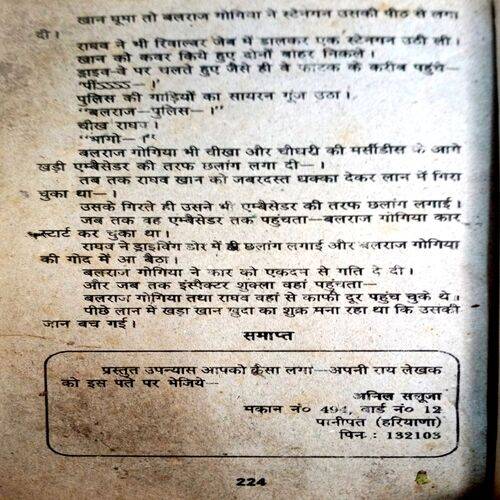 खान घूमा तो बलराज गोगिया ने स्टेनगन उसकी पीठ से लगा
दी।
राघव ने भी रिवाल्वर जेब में डालकर एक स्टेनगन उठी ली।
खान को कवर किये हुए दोनों बाहर निकले।
ड्राइव-वे पर चलते हुए जैसे ही वे फाटक के करीब पहुंचे—
'पींऽऽऽऽ—।'
पुलिस की गाड़ियों का सायरन गूंज उठा।
"बलराज—पुलिस—।"
चीख राघव।
"भागो—।"
बलराज गोगिया भी चीखा और चौधरी की मर्सीडीस के आगे
खड़ी एम्बैसेडर की तरफ छलांग लगा दी—।
तब तक राघव खान को जबरदस्त धक्का देकर लान में गिरा
चुका था—।
उसके गिरते ही उसने भी एम्बैसेडर की तरफ छलांग लगाई।
जब तक वह एम्बैसेडर तक पहुंचता—बलराज गोगिया कार
स्टार्ट कर चुका था।
राघव ने ड्राइविंग डोर में ही छलांग लगाई और बलराज गोगिया
की गोद में आ बैठा।
बलराज गोगिया ने कार को एकदन से गति दे दी।
और जब तक इंस्पैक्टर शुक्ला वहां पहुंचता—
बलराज गोगिया तथा राघव वहां से काफी दूर पहुंच चुके थे।
पीछे लान में खड़ा खान खुदा का शुक्र मना रहा था कि उसकी
जान बच गई।
समाप्त
प्रस्तुत उपन्यास आपको कैसा लगा—अपनी राय लेखक
को इस पते पर भेजिये—
अनिल सलूजा
मकान नं० 494, वार्ड नं० 12
पानीपत (हरियाणा)
पिन : 132103
224